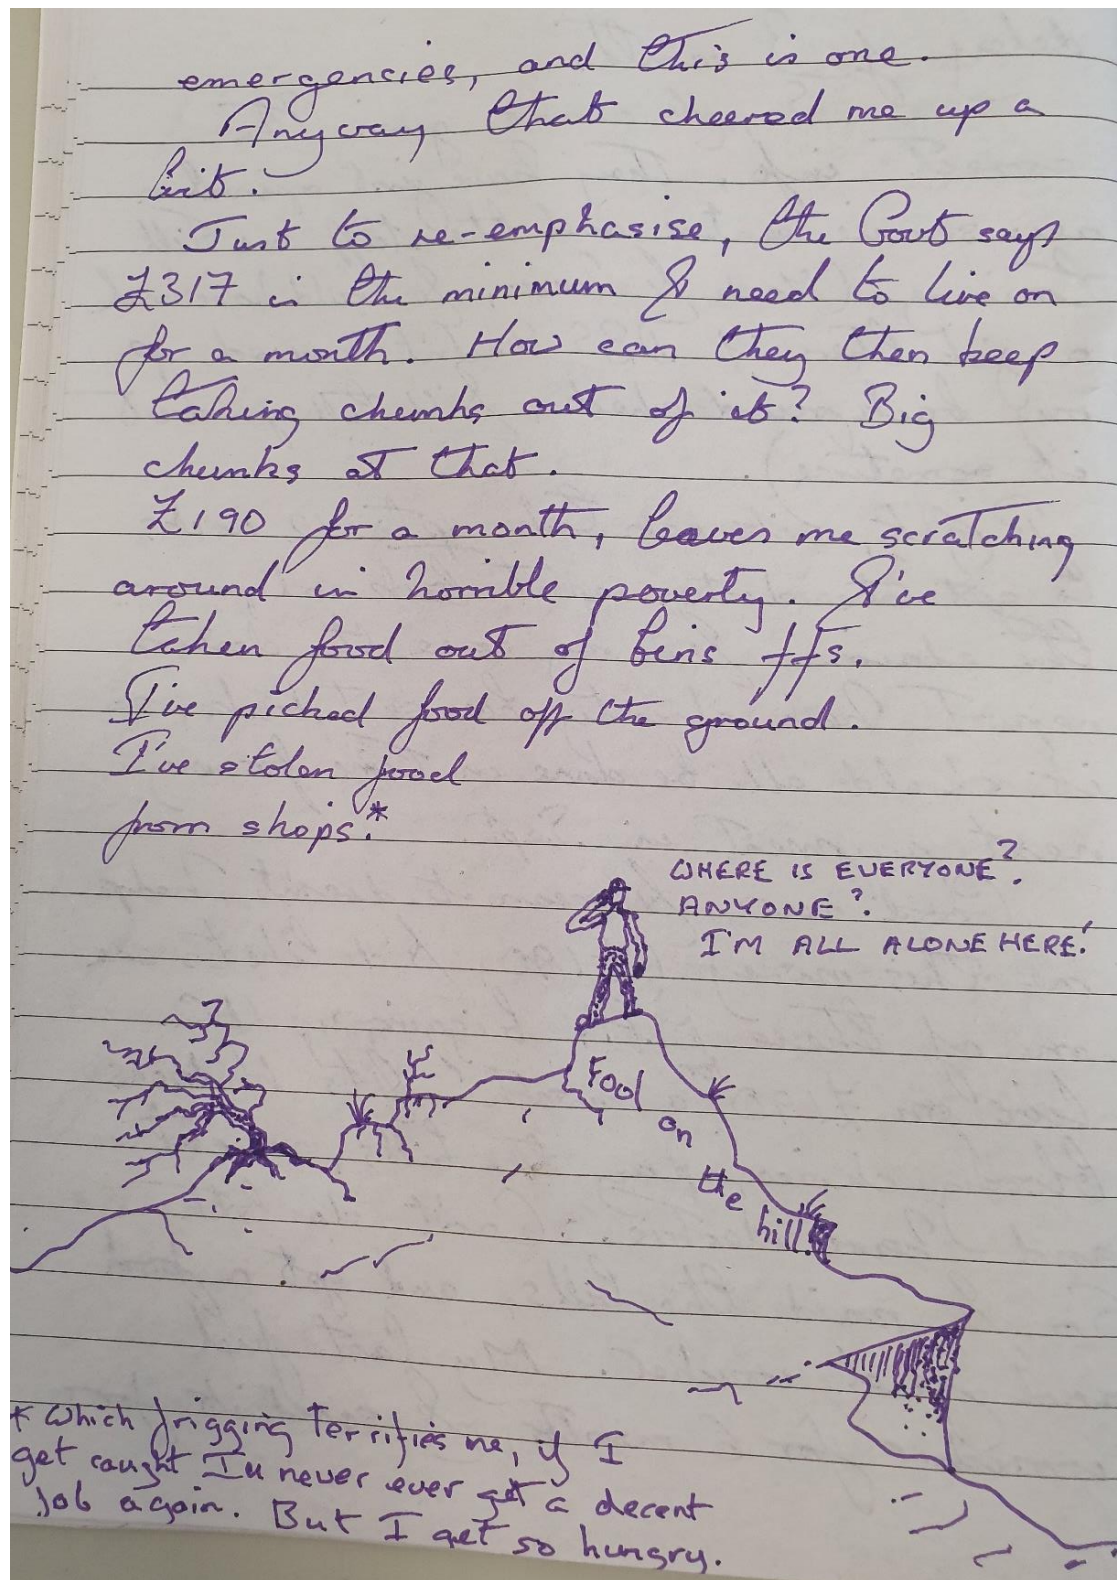 emergencies, and this is one.
Anyway that cheered me up a
bit.
Just to re-emphasise, the Govt says
£317 is the minimum I need to live on
for a month. How can they then keep
taking chunks out of it? Big
chunks at that.
£190 for a month, leaves me scratching
around in horrible poverty. I've
taken food out of bins ffs.
I've picked food off the ground.
I've stolen food
from shops.*
WHERE IS EVERYONE?
ANYONE?
I'M ALL ALONE HERE!
Fool
on
the
hill
* Which frigging terrifies me, if I
get caught I'll never ever get a decent
job again. But I get so hungry.